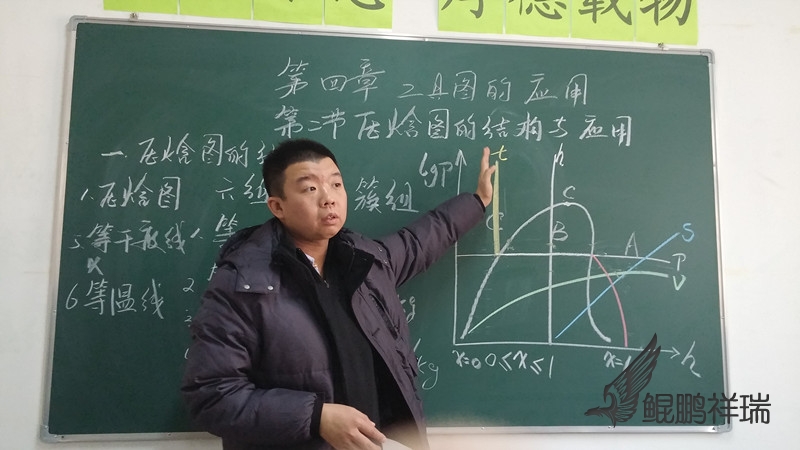 厚德载物
第四章 工具图的应用
第二节 压焓图的结构与应用
一.压焓图的
1.压焓图 六组 簇组
5.等干度线 1.等
x
6.等温线 2
kg
lgP t h
C
B A S
P
V
x=0 0≤x≤1 x=1 h
鲲鹏祥瑞